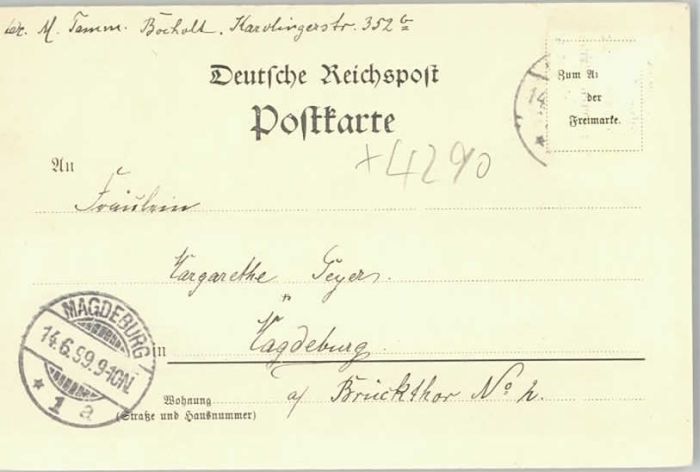 M. Tamm. Bocholt. Karolingerstr. 352
Deutsche Reichspost
Postkarte
Zum A
der
Freimarke.
14
+4290
An
Fräulein
Margarethe
MAGDEBURG
14.6.99.9-10N.
* 1 a
in Magdeburg.
Wohnung
(Straße und Hausnummer)
a/ Brückthor No 2.